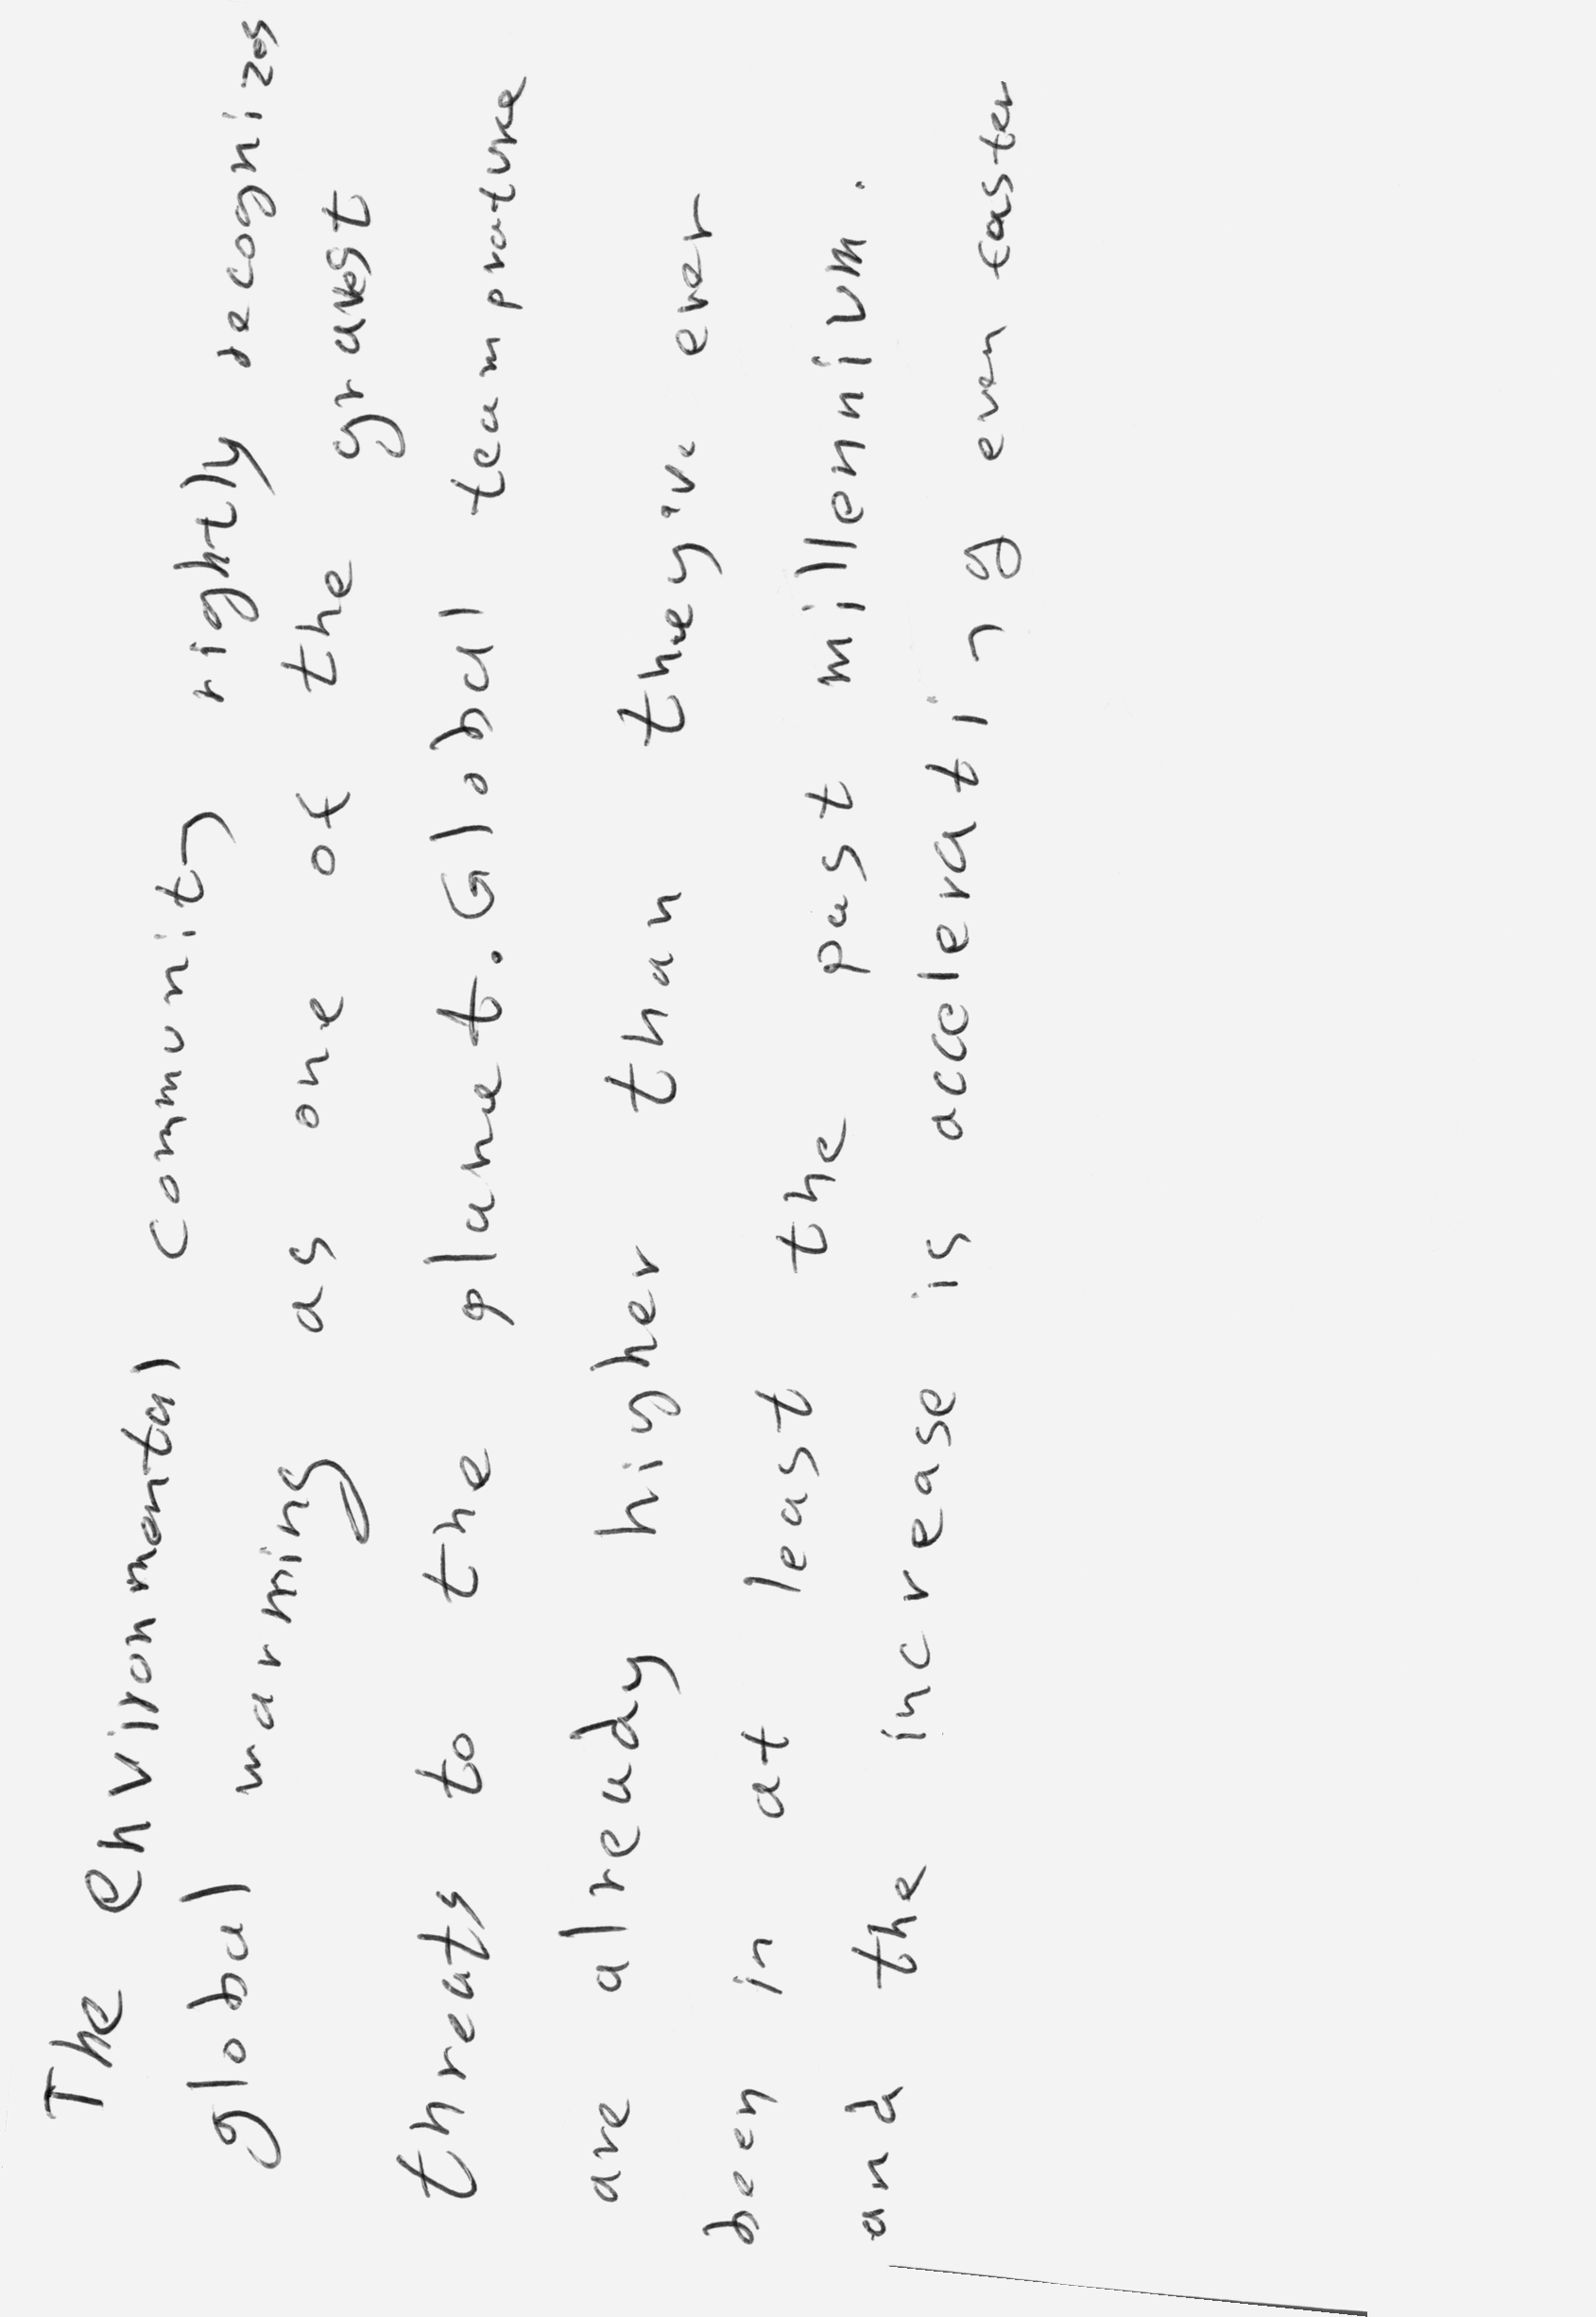 The environmental community rightly recognizes
global warming as one of the gravest
threats to the planet. Global teamprature
are already higher than they've ever
been in at least the past millennium.
and the increase is accelerating even faster